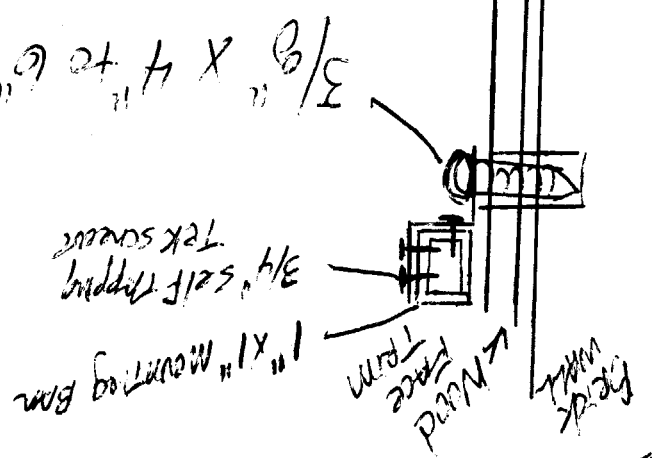 Brick
WALL
Wood
FACE
TRIM
1"x1" mounting Bar
3/4" self Tapping
Tek screws
3/8" x 4" to 6"